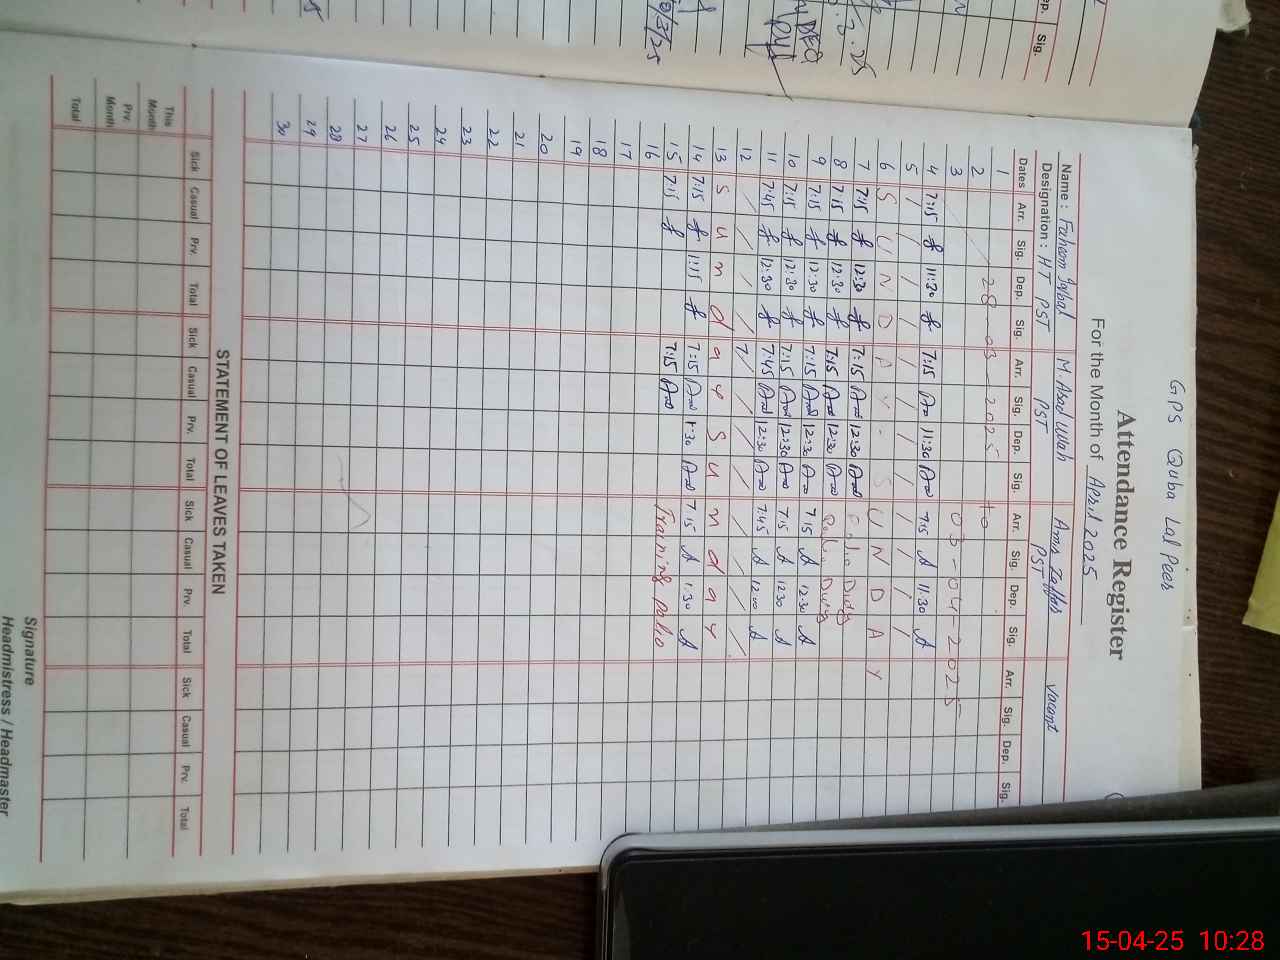 GPS Quba Lal Peer
Attendance Register
For the Month of April 2025
Name: Faheem Iqbal M. Asad Ullah Amn Zaffar Vacant
Designation: HT PST PST PST
Dates Arr. Sig. Dep. Sig. Arr. Sig. Dep. Sig. Arr. Sig. Dep. Sig. Arr. Sig. Dep. Sig.
1
2 28-03-2025 to
3 03-04-2025
4 7:15 11:30 7:15 11:30 7:15 11:30
5
6 SUNDAY. SUNDAY
7 7:15 12:30 7:15 12:30 Polio Duty
8 7:15 12:30 7:15 12:30 Polio Duty
9 7:15 12:30 7:15 12:30 7:15 12:30
10 7:15 12:30 7:15 12:30 7:15 12:30
11 7:45 12:30 7:45 12:30 7:45
12
13 Sunday Sunday
14 7:15 1:15 7:15 1:30 7:15 1:30
15 7:15 7:15 Training polio
16
17
18
19
20
21
22
23
24
25
26
27
28
29
30
STATEMENT OF LEAVES TAKEN
Sick Casual Prv. Total Sick Casual Prv. Total Sick Casual Prv. Total Sick Casual Prv. Total
This Month
Prv. Month
Total
Signature
Headmistress / Headmaster
Sig.
DEO
15-04-25 10:28